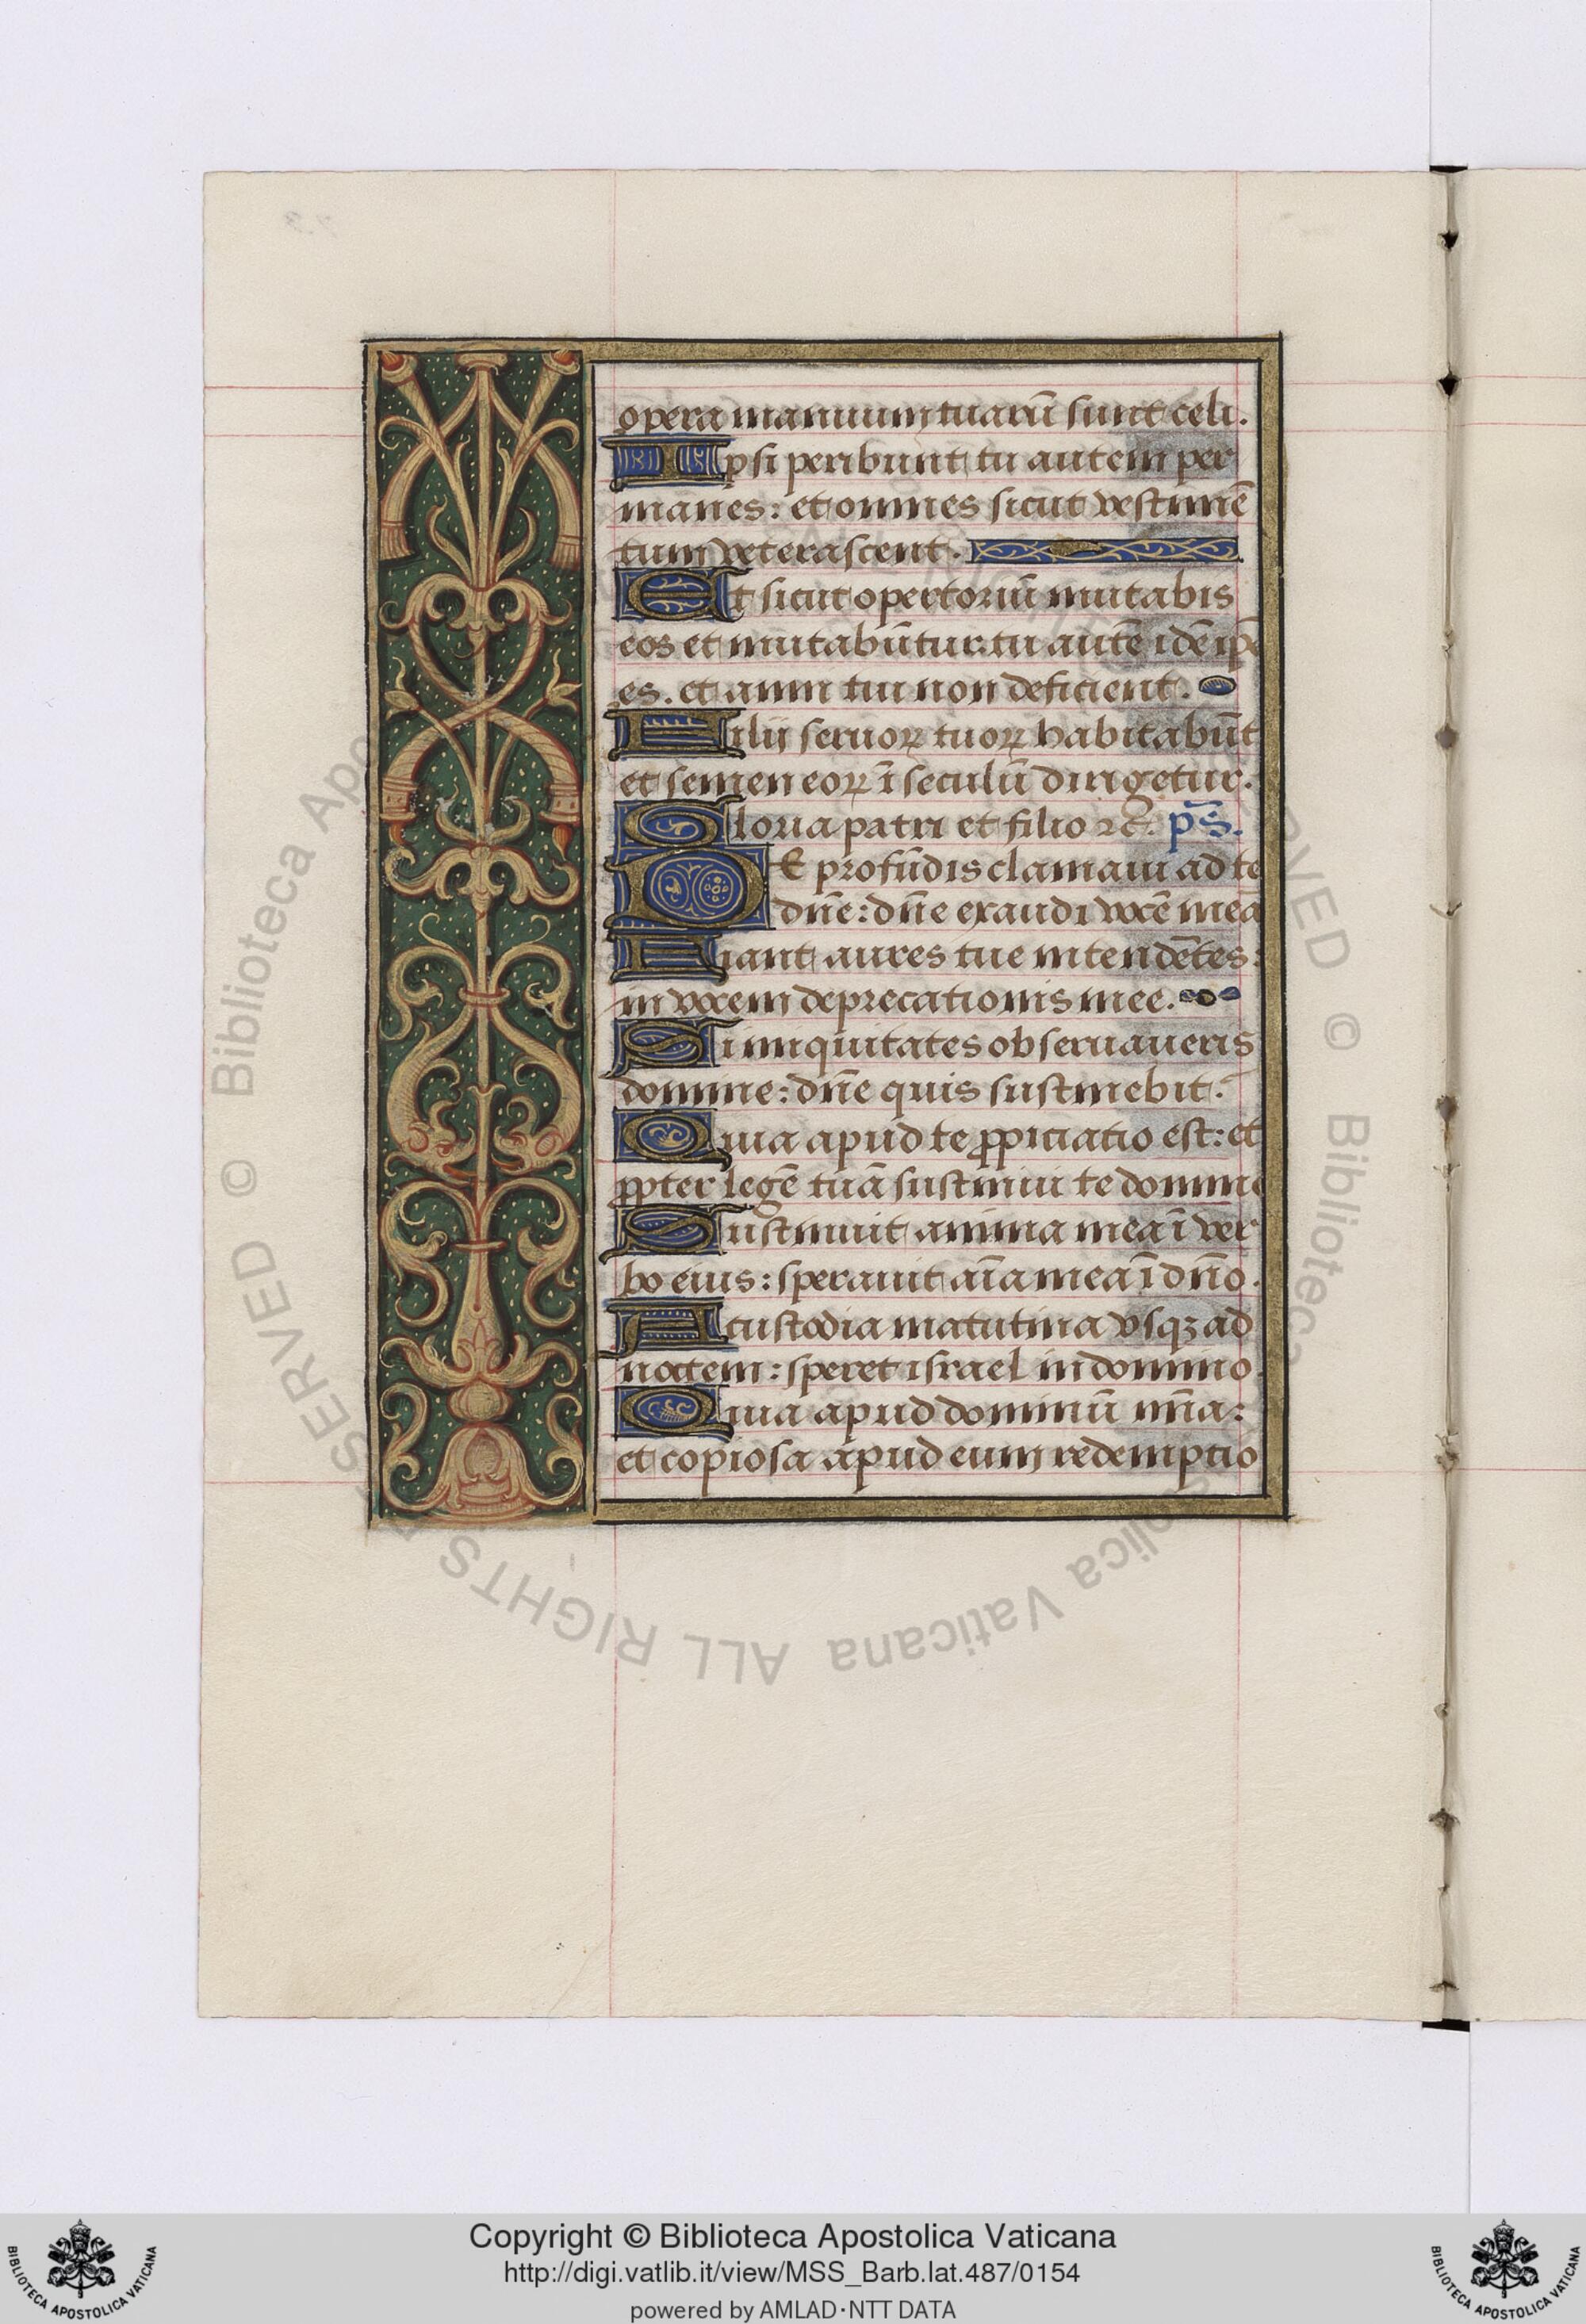 opera manuum tuarū sunt celi.
Ipsi peribunt tu autem per
manes: et omnes sicut vestimē
tum veterascent.
Et sicut opertoriū mutabis
eos et mutabūtur. tu autē idē ipē
es. et anni tui non deficient.
Filij seruoꝝ tuoꝝ habitabūt
et semen eoꝝ ī seculū dirigetur.
Gloria patri et filio ⁊c. p̄s.
DE profūdis clamaui ad te
dn̄e: dn̄e exaudi vocē meā
Fiant aures tue intendētes:
in vocem deprecationis mee.
Si iniquitates obseruaueris
domine: dn̄e quis sustinebit?
Quia apud te ꝓpiciatio est: et
ꝓpter legē tuā sustinui te domine
Sustinuit anima mea ī ver
bo eius: sperauit aīa mea ī dn̄o.
A custodia matutina vsqꝫ ad
noctem: speret israel in domino
Quia apud dominū mīa:
et copiosa apud eum redemptio
© Biblioteca Apostolica Vaticana ALL RIGHTS RESERVED
Copyright © Biblioteca Apostolica Vaticana
http://digi.vatlib.it/view/MSS_Barb.lat.487/0154
powered by AMLAD·NTT DATA
BIBLIOTECA APOSTOLICA VATICANA
BIBLIOTECA APOSTOLICA VATICANA